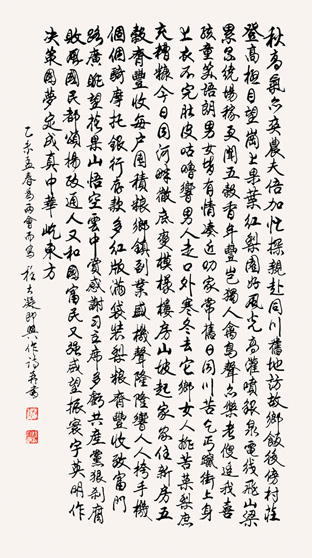 秋高氣爽農夫倍加忙探親赴同川舊地訪故鄉飯後傍村莊
登高極目望崗上旱葉紅梨園好風光高灌噴銀泉電綫飛山梁
累累繞場稼更聞五穀香年豐豈獨人禽鳥聲亦樂老傻逗我喜
孩童笑語朗男女皆有情湊近叨家常舊日同川苦乞丐躥街上身
上衣不完肚皮咕咯響男人走口外寒冬去它鄉女人挑苦菜梨庶
充糟糠今日同河咯徹底變模樣樓房山坡起家家住新房五
穀齊豐收每户囤積糧鄉鎮列業盛機聲隆隆響人人揣手機
個個騎摩托銀行存款多紅版滿袋裝梨粮齊豐收致富門
路廣眺望於果山悟空雲中賞感謝習主席多虧共產黨狠刹腐
敗風國民都頌揚政通人又和國富民又強咸望振寰宇英明作
決策圓夢定成真中華屹東方
乙未孟春為兩會而寫 凝即興作詩并書